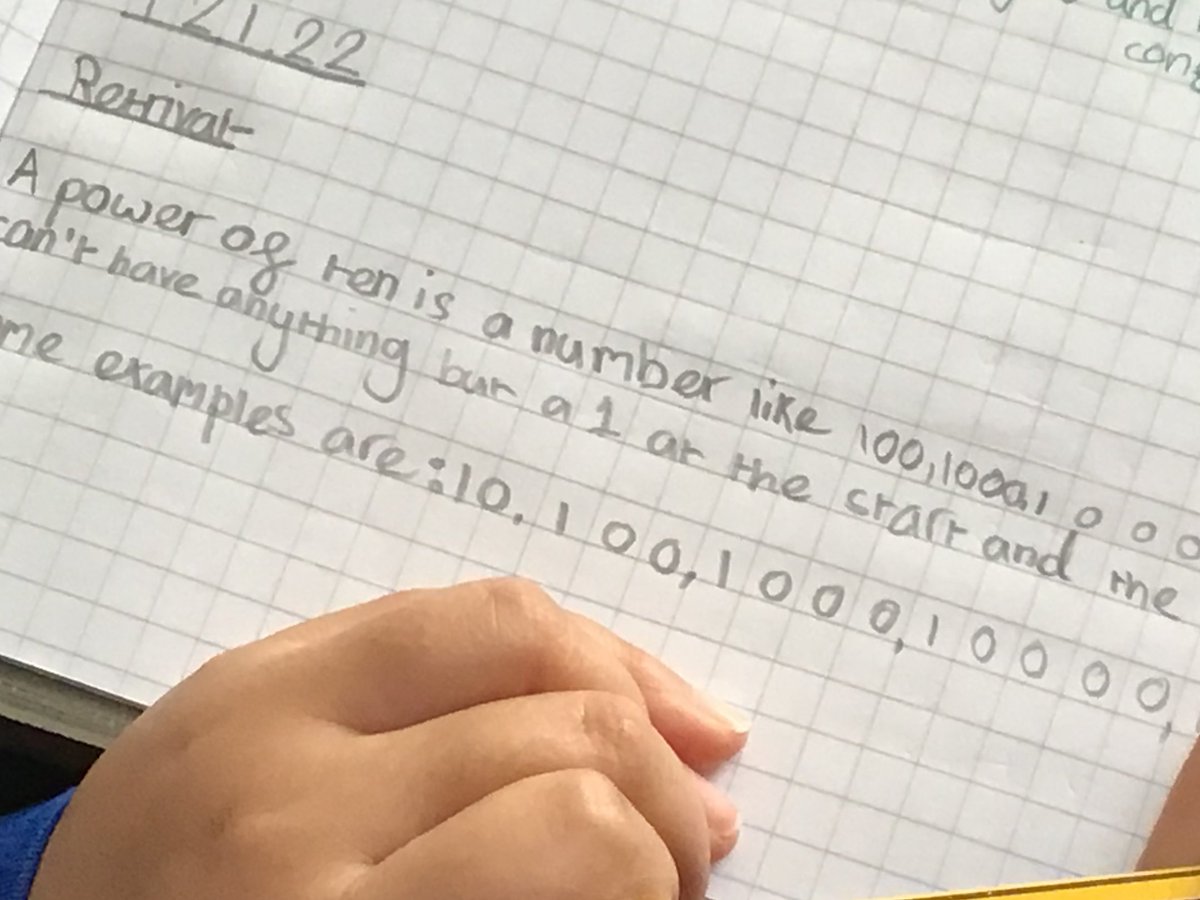 and
121.22
Retrival
A power of ten is a number like 100,1000,1 0 0 0
can't have anything but a 1 at the start and the
me examples are:10, 1 0 0, 1 0 0 0, 1 0 0 0 0,